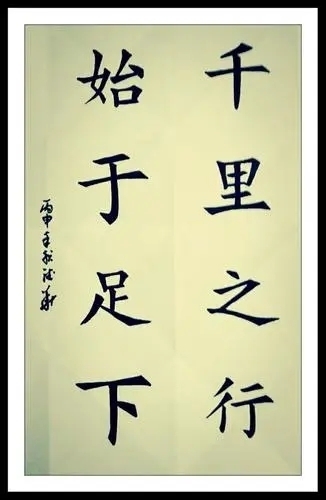 千里之行
始于足下
丙申年秋